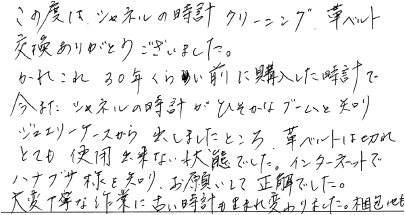 この度は、シャネルの時計クリーニング、革ベルト
交換ありがとうございました。
かれこれ30年くらい前に購入した時計で
今また シャネルの時計がひそかなブームと知り
ジュエリーケースから 出しましたところ、革ベルトは切れ
とても 使用出来ない状態でした。インターネットで
ハナブサ様を知り、お願いして正解でした。
大変丁寧な作業に古い時計も生まれ変わりました。相包は